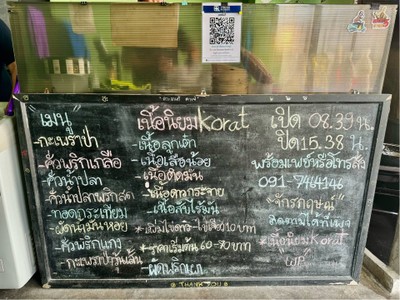 "เมนู"
-กะเพราป่า
-คั่วพริกเกลือ
-คั่วน้ำปลา
-คั่วน้ำปลาพริกสด
-ทอดกระเทียม
-ผัดน้ำมันหอย
-คั่วพริกแกง
-กะเพราวุ้นเส้น
เนื้อนิยมKorat
-เนื้อลูกเต๋า
-เนื้อเสือร้องไห้
-เนื้อติดมัน
-เนื้อดาวกระจาย
-เนื้อสันไร้มัน
*เพิ่มไข่ดาว-ไข่เจียว10บาท
*ราคาเริ่มต้น 60-70บาท
เปิด 08.39 น.
ปิด 15.38 น.
พร้อมเพย์หรือโทรสั่ง
091-7464146
"จักรกฤษณ์"
ติดตามได้ที่เพจ
*เนื้อนิยมKorat
WP"
THANK YOU